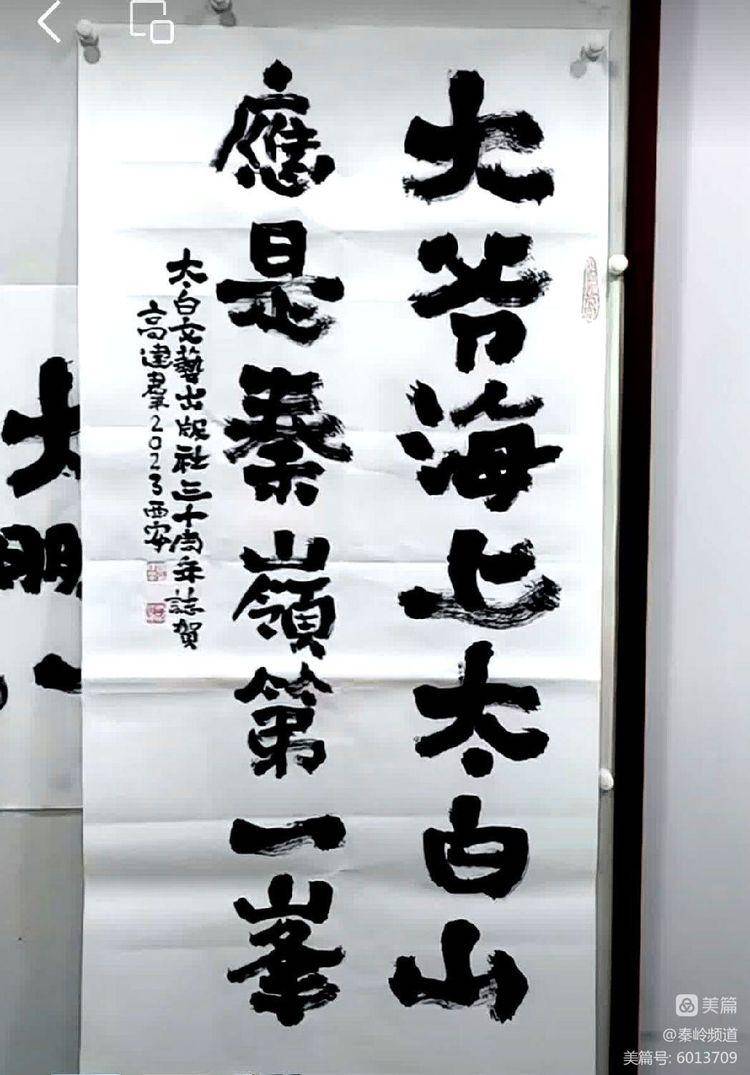 大爷海上太白山
應是秦嶺第一峯
太白文藝出版社三十周年誌賀
高建羣2023西安
美篇
@秦岭频道
美篇号: 6013709